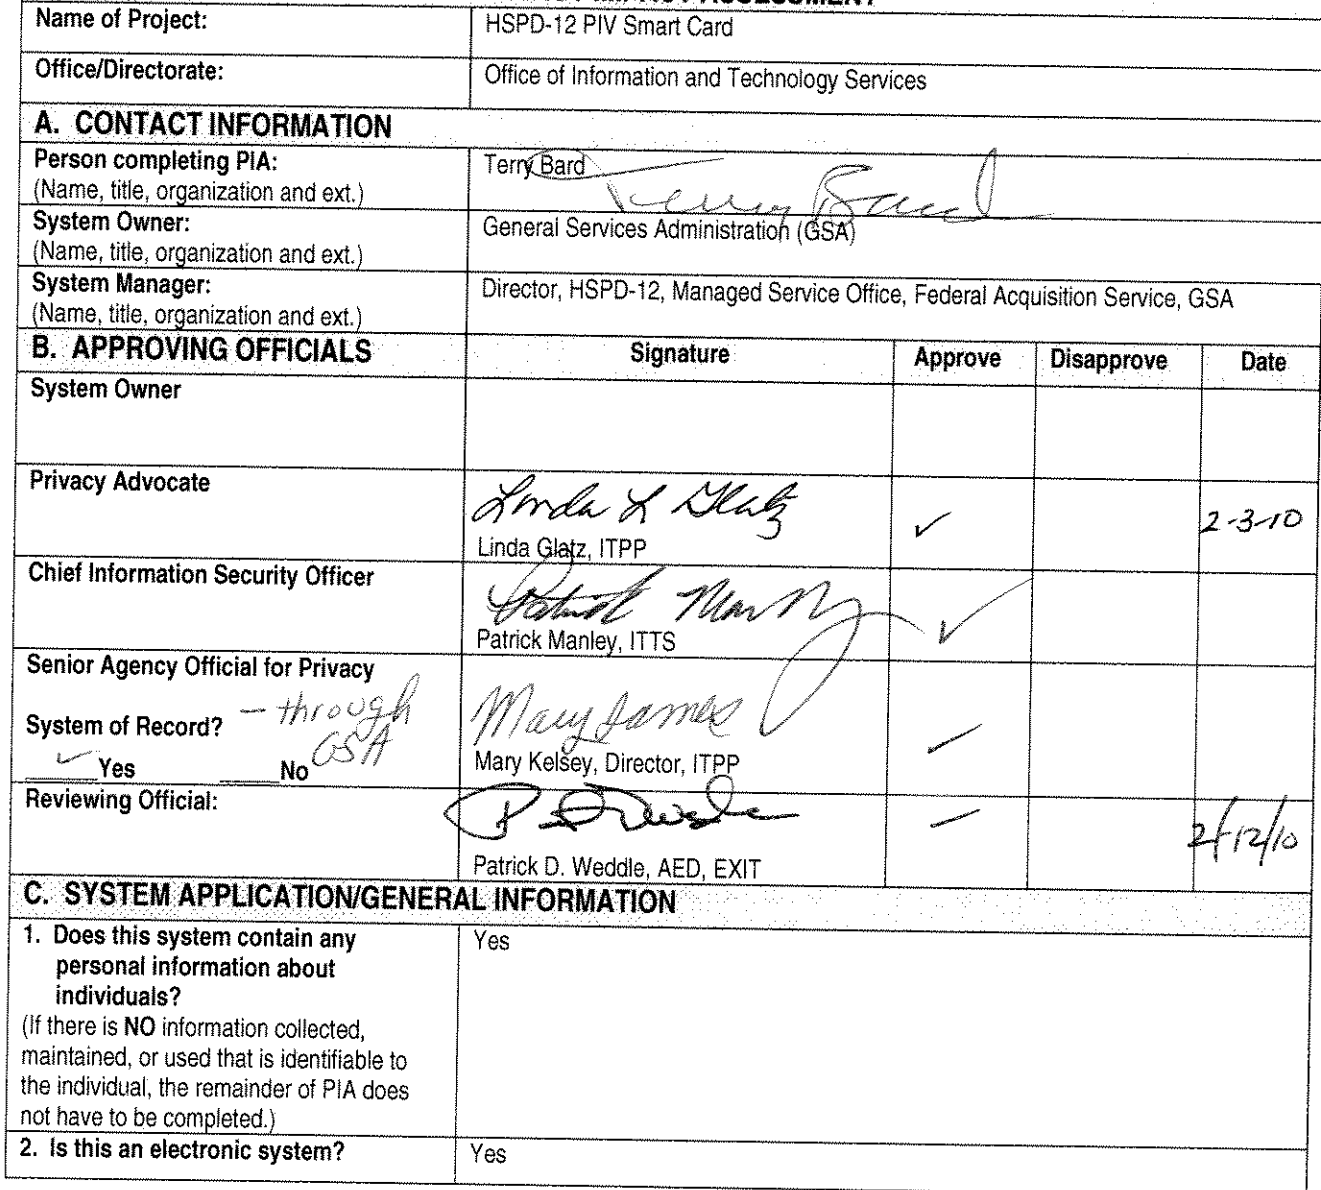 Name of Project: HSPD-12 PIV Smart Card
Office/Directorate: Office of Information and Technology Services
A. CONTACT INFORMATION
Person completing PIA: Terry Bard
(Name, title, organization and ext.) Terry Bard
System Owner: General Services Administration (GSA)
(Name, title, organization and ext.)
System Manager: Director, HSPD-12, Managed Service Office, Federal Acquisition Service, GSA
(Name, title, organization and ext.)
B. APPROVING OFFICIALS Signature Approve Disapprove Date
System Owner
Privacy Advocate
Linda L Glatz ✓ 2-3-10
Linda Glatz, ITPP
Chief Information Security Officer
Patrick Manley ✓
Patrick Manley, ITTS
Senior Agency Official for Privacy
System of Record? - through GSA
Mary James ✓
✓ Yes ____No
Mary Kelsey, Director, ITPP
Reviewing Official:
2/12/10
Patrick D. Weddle, AED, EXIT
C. SYSTEM APPLICATION/GENERAL INFORMATION
1. Does this system contain any Yes
personal information about
individuals?
(If there is NO information collected,
maintained, or used that is identifiable to
the individual, the remainder of PIA does
not have to be completed.)
2. Is this an electronic system? Yes